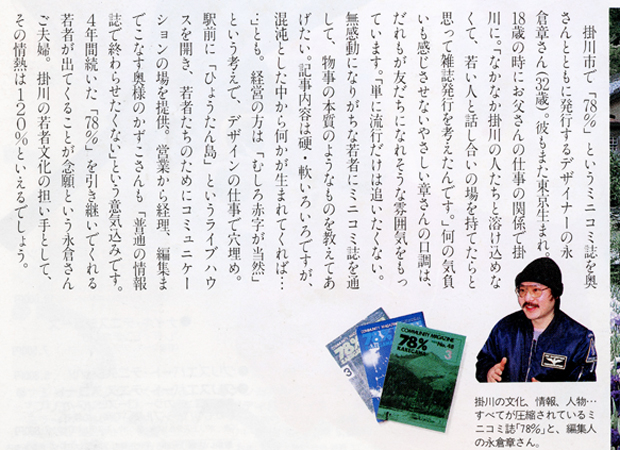 掛川市で「78%」というミニコミ誌を奥
さんとともに発行するデザイナーの永
倉章さん(32歳)。彼もまた東京生まれ。
18歳の時にお父さんの仕事の関係で掛
川に。「なかなか掛川の人たちと溶け込めな
くて、若い人と話し合いの場を持てたらと
思って雑誌発行を考えたんです。」何の気負
いも感じさせないやさしい章さんの口調は、
だれもが友だちになれそうな雰囲気をもっ
ています。「単に流行だけは追いたくない。
無感動になりがちな若者にミニコミ誌を通
して、物事の本質のようなものを教えてあ
げたい。記事内容は硬・軟いろいろですが、
混沌とした中から何かが生まれてくれば…
…」とも。経営の方は「むしろ赤字が当然」
という考えで、デザインの仕事で穴埋め。
駅前に「ひょうたん島」というライブハウ
スを開き、若者たちのためにコミュニケー
ションの場を提供。営業から経理、編集ま
でこなす奥様のかずこさんも「普通の情報
誌で終わらせたくない」という意気込みです。
4年間続いた「78%」を引き継いでくれる
若者が出てくることが念願という永倉さん
ご夫婦。掛川の若者文化の担い手として、
その情熱は120%といえるでしょう。
COMMUNITY MAGAZINE
78%
KAKEGAWA
No.48
3
COMMUNITY MAGAZINE
78%
3
掛川の文化、情報、人物…
すべてが圧縮されているミ
ニコミ誌「78%」と、編集人
の永倉章さん。